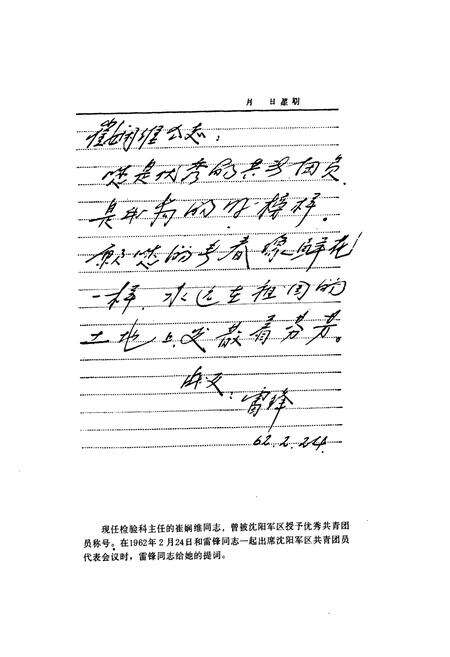 月 日星期
崔娴维同志：
您是优秀的共青团员，
是我们的好榜样。
愿您的青春像鲜花
一样，永远在祖国的
土地上发散着芬芳。
战友：
雷锋
62.2.24.
现任检验科主任的崔娴维同志，曾被沈阳军区授予优秀共青团
员称号。在1962年2月24日和雷锋同志一起出席沈阳军区共青团员
代表会议时，雷锋同志给她的提词。